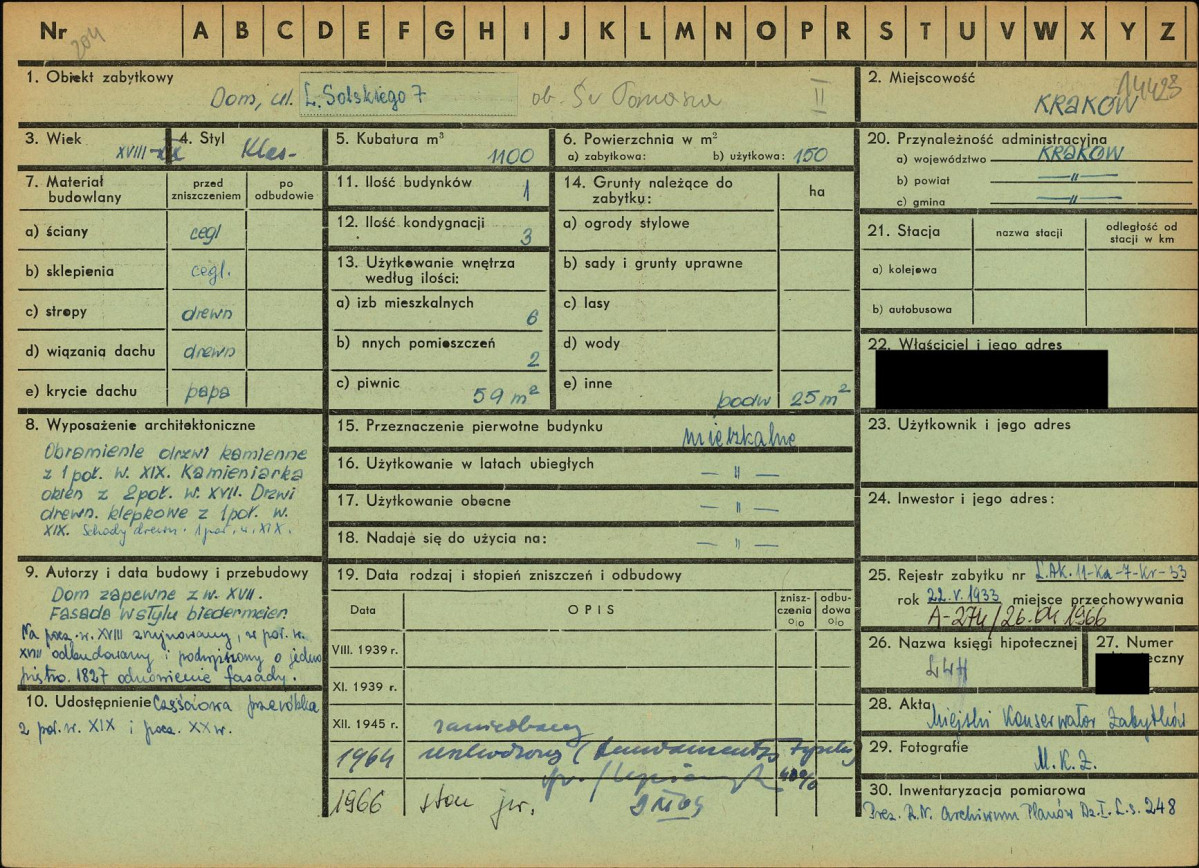 Nr A B C D E F G H I J K L M N O P R S T U V W X Y Z
204
1. Obiekt zabytkowy
Dom, ul. L. Solskiego 7 ob. Św Tomasza II
2. Miejscowość
14423
KRAKÓW
3. Wiek
XVIII-XX
4. Styl
Klas-
5. Kubatura m³
1100
6. Powierzchnia w m²
a) zabytkowa: b) użytkowa: 150
20. Przynależność administracyjna
a) województwo KRAKÓW
b) powiat —"—
c) gmina —"—
7. Materiał budowlany
przed zniszczeniem
po odbudowie
a) ściany cegl
b) sklepienia cegl.
c) stropy drewn
d) wiązania dachu drewn
e) krycie dachu papa
11. Ilość budynków 1
12. Ilość kondygnacji 3
13. Użytkowanie wnętrza
według ilości:
a) izb mieszkalnych 6
b) nnych pomieszczeń 2
c) piwnic 59 m²
14. Grunty należące do
zabytku:
ha
a) ogrody stylowe
b) sady i grunty uprawne
c) lasy
d) wody
e) inne podw 25 m²
21. Stacja
nazwa stacji
odległość od
stacji w km
a) kolejowa
b) autobusowa
22. Właściciel i jego adres
8. Wyposażenie architektoniczne
Obramienie drzwi kamienne
z 1 poł. w. XIX. Kamieniarka
okien z 2 poł. w. XVII. Drzwi
drewn. klepkowe z 1 poł. w.
XIX. Schody drewn. 1 poł. w. XIX.
15. Przeznaczenie pierwotne budynku mieszkalne
16. Użytkowanie w latach ubiegłych — " —
17. Użytkowanie obecne — " —
18. Nadaje się do użycia na: — " —
23. Użytkownik i jego adres
24. Inwestor i jego adres:
9. Autorzy i data budowy i przebudowy
Dom zapewne z w. XVII.
Fasada w stylu biedermeier.
Na pocz. w. XVIII zrujnowany, w poł. w.
XVIII odbudowany i podwyższony o jedno
piętro. 1827 odnowienie fasady.
10. Udostępnienie Częściowa przeróbka
2 poł. w. XIX i pocz. XX w.
19. Data rodzaj i stopień zniszczeń i odbudowy
Data
OPIS
znisz-
czenia
%
odbu-
dowa
%
VIII. 1939 r.
XI. 1939 r.
XII. 1945 r. zaniedbany
1964 uszkodzony (fundamenty, tynki) 40%
1966 stan jw.
25. Rejestr zabytku nr L.AK.11-Ka-7-Kr-33
rok 22.V.1933 miejsce przechowywania
A-274/26.04 1966
26. Nazwa księgi hipotecznej
LWH
27. Numer
eczny
28. Akta Miejski Konserwator Zabytków
29. Fotografie
M.K.Z.
30. Inwentaryzacja pomiarowa
Prez. R.N. Archiwum Planów Dz. I. L.s. 248